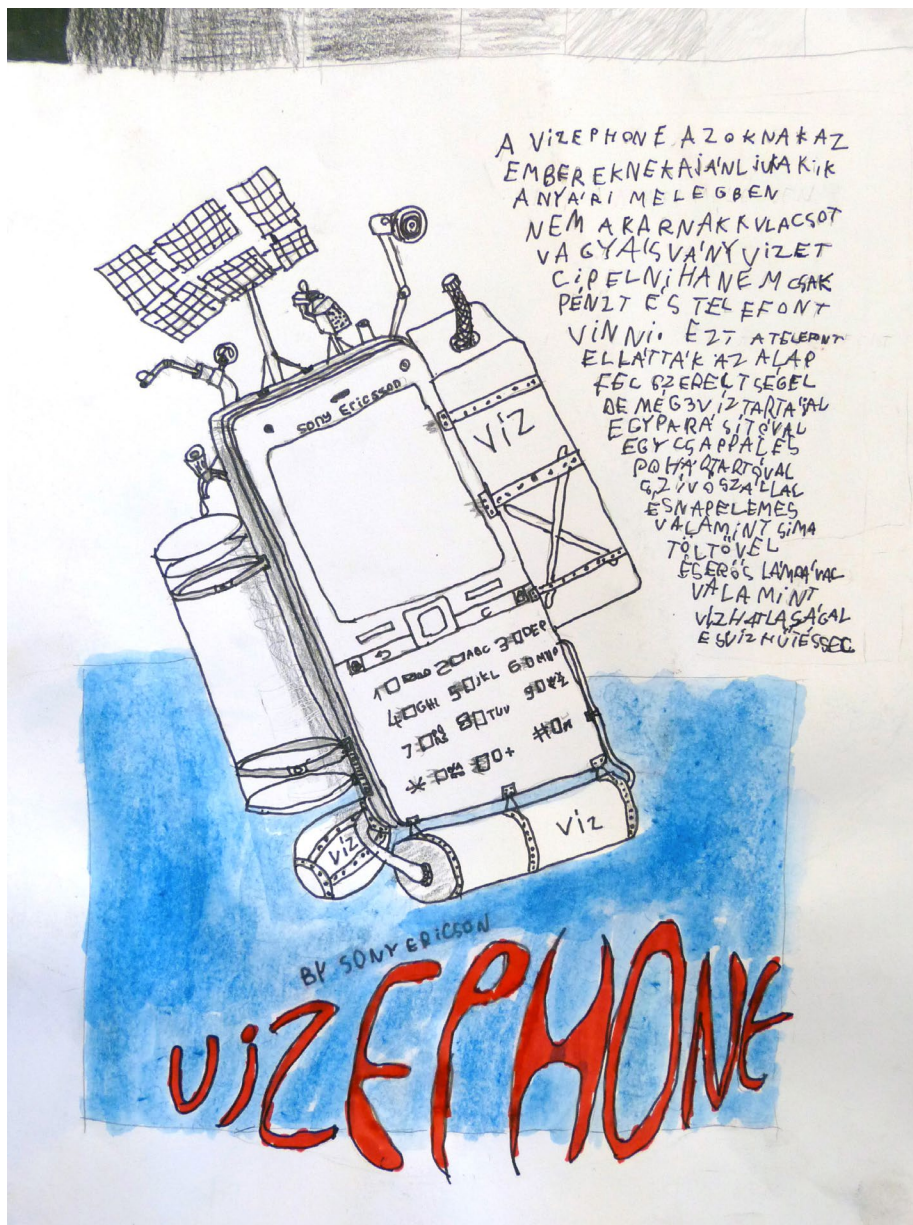 A VÍZEPHONE AZOKNAK AZ
EMBEREKNEK AJÁNLJUK AKIK
A NYÁRI MELEGBEN
NEM AKARNAK KULACSOT
VAGY ÁSVÁNYVIZET
CIPELNI HANEM CSAK
PÉNZT ÉS TELEFONT
VINNI. EZT A TELEFONT
ELLÁTTÁK AZ ALAP
FELSZERELTSÉGEL
DE MÉG 3 VÍZTARTÁJAL
EGY PARÁSÍTÓVAL
EGY CSAPPAL ÉS
POHÁRTARTÓVAL
SZÍVÓSZÁLLAL
ÉS NAPELEMES
VALAMINT SIMA
TÖLTŐVEL
ÉS ERŐS LÁMPÁVAL
VALAMINT
VÍZHATLASÁGAL
ÉS VÍZHŰTÉSSEL
SONY ERICSSON
VÍZ
1 2 ABC 3 DEF
4 GHI 5 JKL 6 MNO
7 8 TUV 9
* 0+ #
VÍZ
VÍZ
BY SONY ERICSON
VIZEPHONE